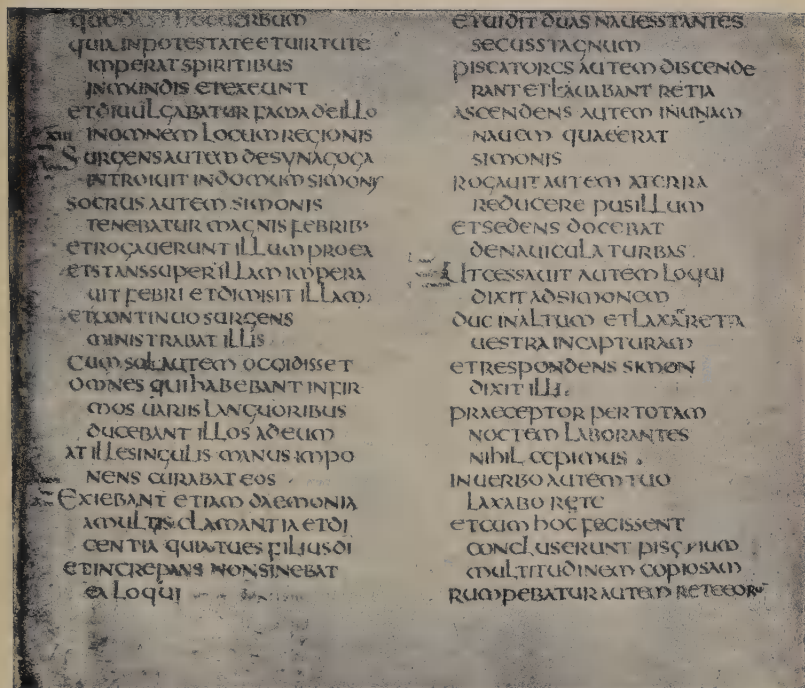 QUOD EST HOC UERBUM
QUIA IN POTESTATE ET UIRTUTE
IMPERAT SPIRITIBUS
INMUNDIS ET EXEUNT
ET DIUULGABATUR FAMA DE ILLO
IN OMNEM LOCUM REGIONIS
SURGENS AUTEM DE SYNAGOGA
INTROIUIT IN DOMUM SIMONIS
SOCRUS AUTEM SIMONIS
TENEBATUR MAGNIS FEBRIB·
ET ROGAUERUNT ILLUM PRO EA
ET STANS SUPER ILLAM IMPERA
UIT FEBRI ET DIMISIT ILLAM
ET CONTINUO SURGENS
MINISTRABAT ILLIS
CUM SOL AUTEM OCCIDISSET
OMNES QUI HABEBANT INFIR
MOS UARIIS LANGUORIBUS
DUCEBANT ILLOS AD EUM
AT ILLE SINGULIS MANUS IMPO
NENS CURABAT EOS
EXIEBANT ETIAM DAEMONIA
A MULTIS CLAMANTIA ET DI
CENTIA QUIA TU ES FILIUS DI
ET INCREPANS NON SINEBAT
EA LOQUI
ET UIDIT DUAS NAUES STANTES
SECUS STAGNUM
PISCATORES AUTEM DISCENDE
RANT ET LAUABANT RETIA
ASCENDENS AUTEM IN UNAM
NAUEM QUAE ERAT
SIMONIS
ROGAUIT AUTEM A TERRA
REDUCERE PUSILLUM
ET SEDENS DOCEBAT
DE NAUICULA TURBAS
UT CESSAUIT AUTEM LOQUI
DIXIT AD SIMONEM
DUC IN ALTUM ET LAXATE RETIA
UESTRA IN CAPTURAM
ET RESPONDENS SIMON
DIXIT ILLI
PRAECEPTOR PER TOTAM
NOCTEM LABORANTES
NIHIL CEPIMUS
IN UERBO AUTEM TUO
LAXABO RETE
ET CUM HOC FECISSENT
CONCLUSERUNT PISCIUM
MULTITUDINEM COPIOSAM
RUMPEBATUR AUTEM RETE EORŪ